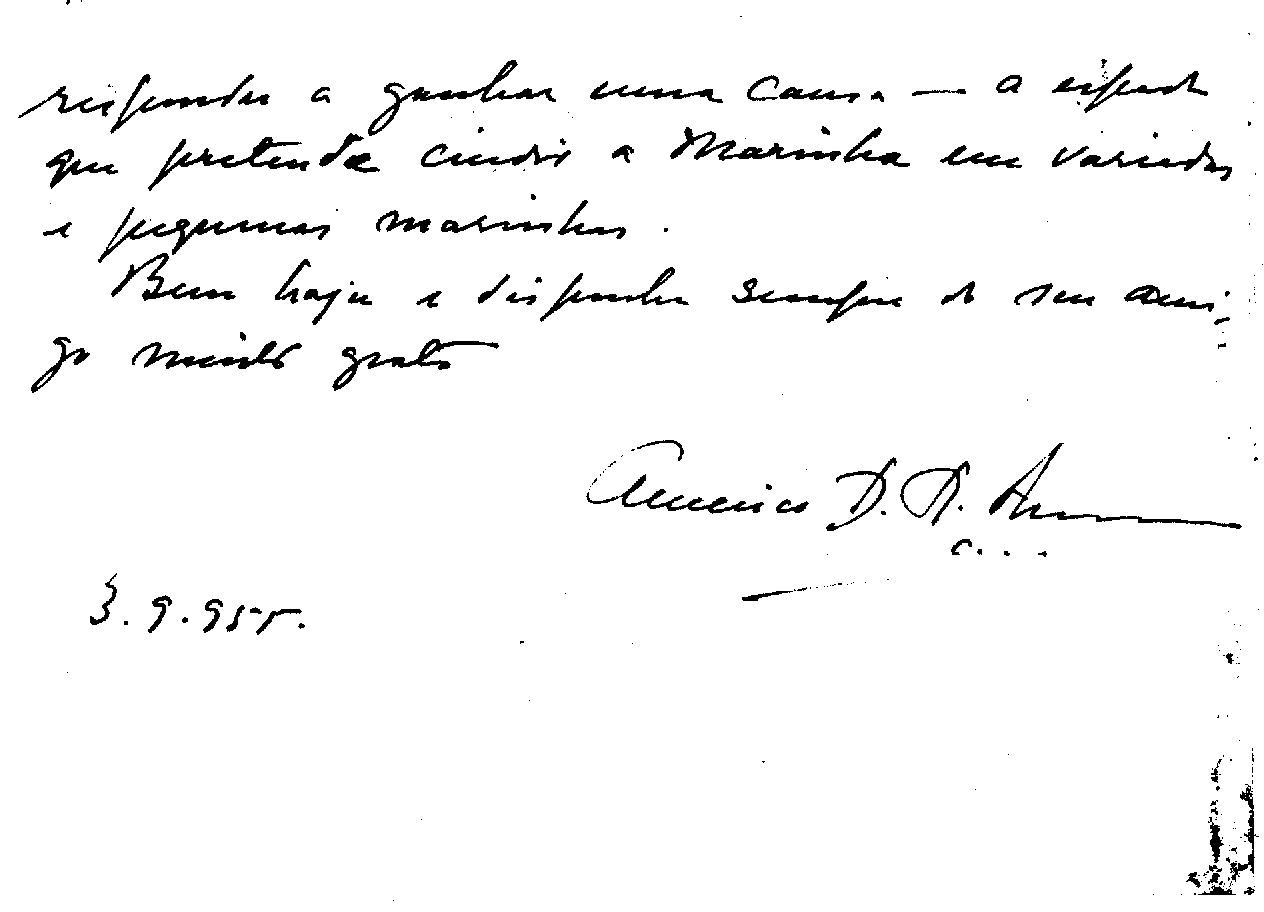 responder a ganhar uma causa — a
que pretende cindir a Marinha em variadas
e pequenas marinhas.
Bem haja e disponha sempre do seu ami-
go muito grato
Americo D. R.
3.9.955.